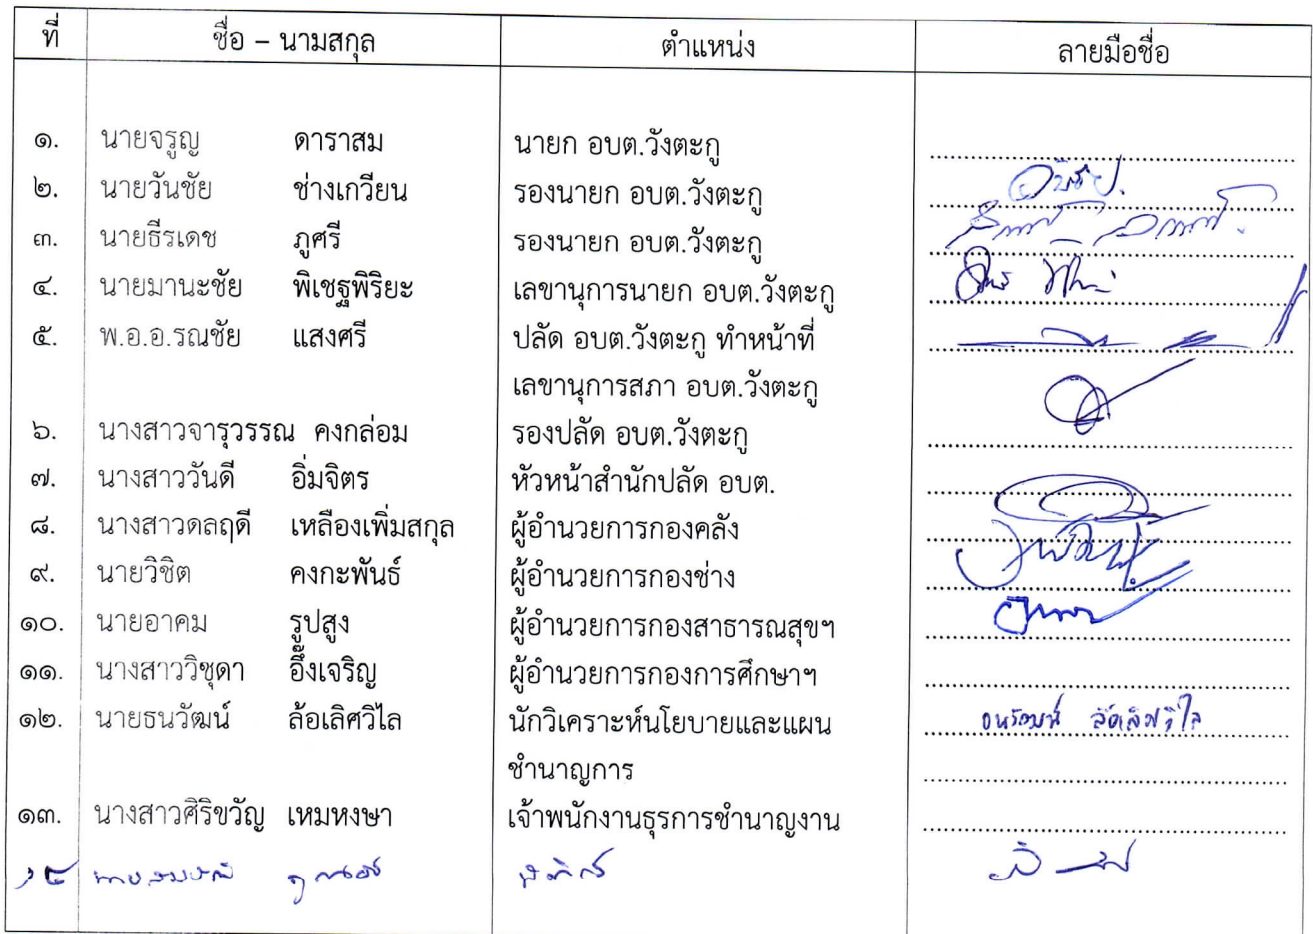 ที่ ชื่อ – นามสกุล ตำแหน่ง ลายมือชื่อ
๑. นายจรูญ ดาราสม นายก อบต.วังตะกู
๒. นายวันชัย ช่างเกวียน รองนายก อบต.วังตะกู
๓. นายธีรเดช ภูศรี รองนายก อบต.วังตะกู
๔. นายมานะชัย พิเชฐพิริยะ เลขานุการนายก อบต.วังตะกู
๕. พ.อ.อ.รณชัย แสงศรี ปลัด อบต.วังตะกู ทำหน้าที่
เลขานุการสภา อบต.วังตะกู
๖. นางสาวจารุวรรณ คงกล่อม รองปลัด อบต.วังตะกู
๗. นางสาววันดี อิ่มจิตร หัวหน้าสำนักปลัด อบต.
๘. นางสาวดลฤดี เหลืองเพิ่มสกุล ผู้อำนวยการกองคลัง
๙. นายวิชิต คงกะพันธ์ ผู้อำนวยการกองช่าง
๑๐. นายอาคม รูปสูง ผู้อำนวยการกองสาธารณสุขฯ
๑๑. นางสาววิชุดา อึ๊งเจริญ ผู้อำนวยการกองการศึกษาฯ
๑๒. นายธนวัฒน์ ล้อเลิศวิไล นักวิเคราะห์นโยบายและแผน ธนวัฒน์ ล้อเลิศวิไล
ชำนาญการ
๑๓. นางสาวศิริขวัญ เหมหงษา เจ้าพนักงานธุรการชำนาญงาน
๑๔